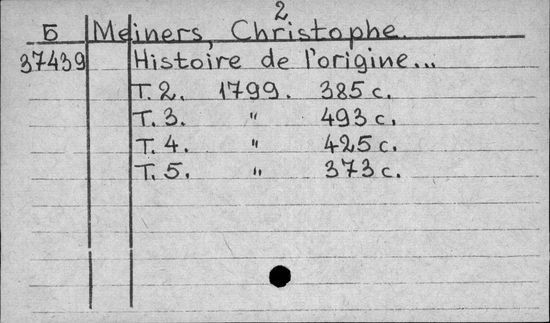 2
Б Meiners, Christophe.
37439 Histoire de l'origine...
T. 2. 1799. 385 с.
T. 3. " 493 с.
T. 4. " 425 с.
T. 5. " 373 с.